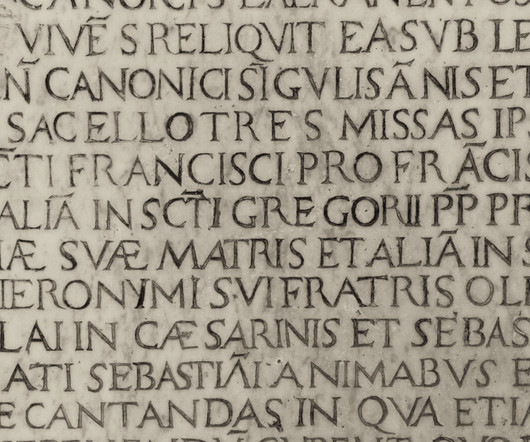 VIVẼ S RELIQVIT EA SVB LE
Ñ CANONICI SĨGVLIS ÃNIS ET
SACELLO TRES MISSAS IP
C̄TI FRANCISCI PRO FRÃCIS
ALIÃ IN SC̄TI GREGORII P̄P̄ PR
Æ SVÆ MATRIS ET ALIÃ IN S
IERONYMI SVI FRATRIS OLI
LAI IN CÆSARINIS ET SEBAS
ATI SEBASTIÃI ANIMABVS E
E CANTANDAS IN QVA ET IA